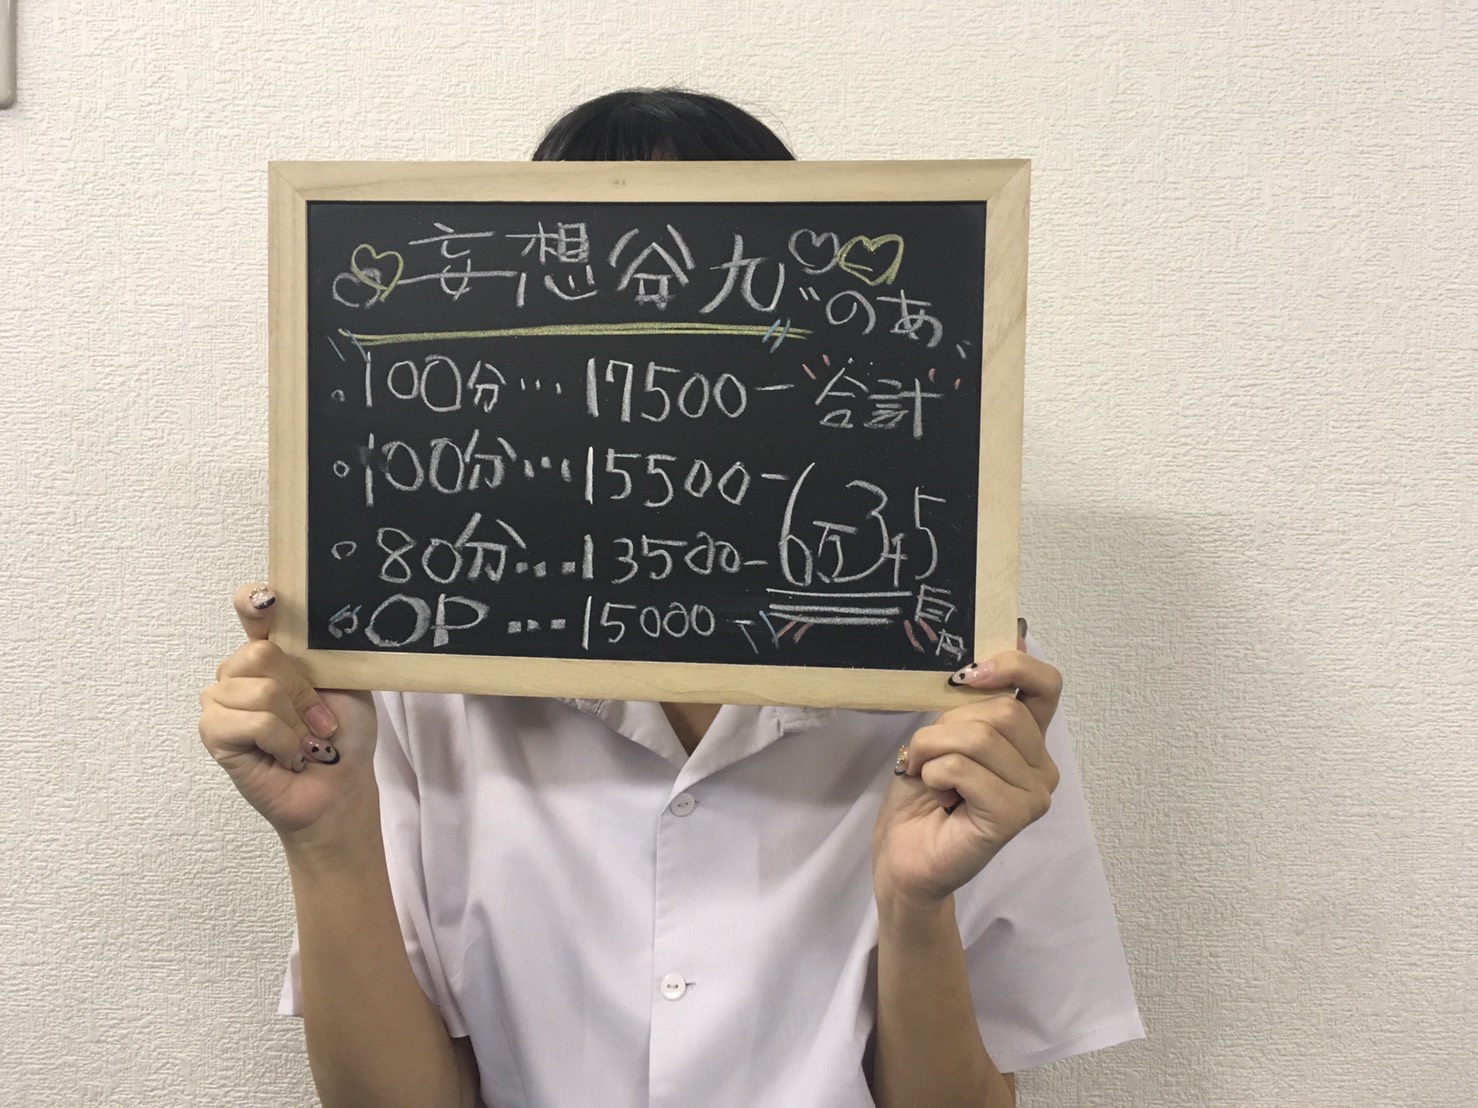 妄想谷九
"のあ"
100分…17500-
100分…15500-
80分…13500-
OP…15000-
合計
6万345
円